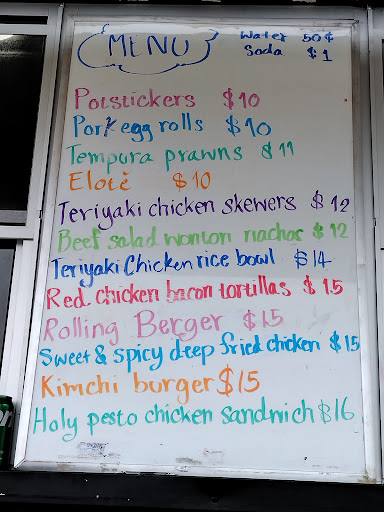 MENU
Water 50¢
Soda $1
Potstickers $10
Pork egg rolls $10
Tempura prawns $11
Elote $10
Teriyaki chicken skewers $12
Beef salad wonton nachos $12
Teriyaki Chicken rice bowl $14
Red chicken bacon tortillas $15
Rolling Berger $15
Sweet & spicy deep fried chicken $15
Kimchi burger $15
Holy pesto chicken sandwich $16